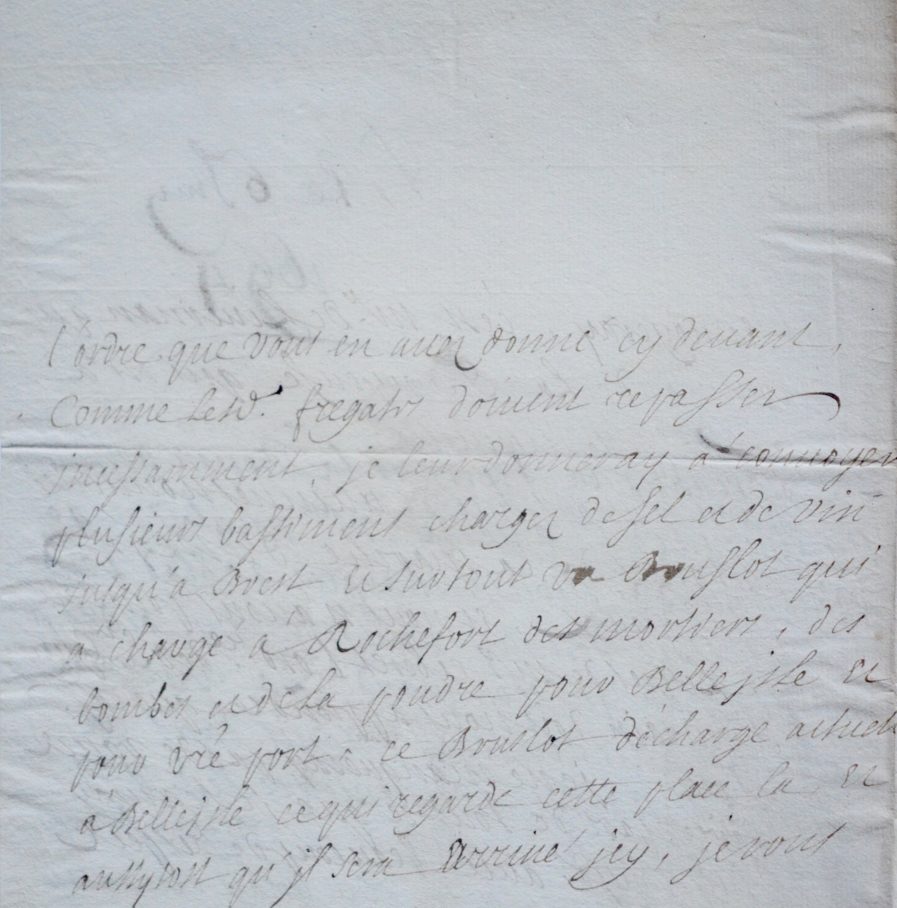 l'ordre que vous en avez donné cy devant,
Comme lesd. fregates doivent repasser
incessamment, je leur donneray a convoyer
plusieurs bastiments chargez de sel et de vin
jusqu'a Brest et surtout un Bruslot qui
a chargé a Rochefort des mortiers, des
bombes et de la poudre pour Belleisle et
pour vre port, ce Bruslot décharge actuel
a Belleisle ce qui regarde cette place la, et
aussytost qu'jl sera arrivé jcy, je vous